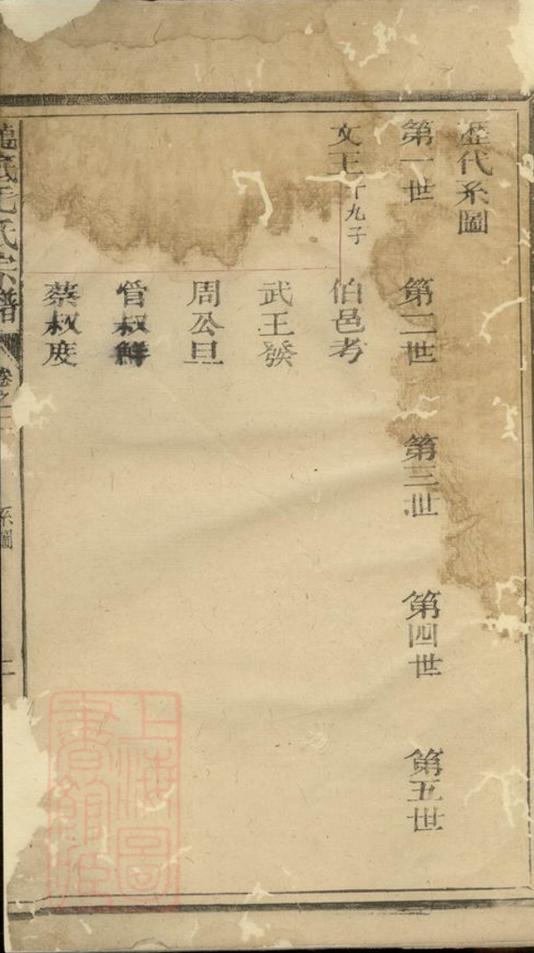 歷代系圖
第一世 第二世 第三世 第四世 第五世
文王 十九子 伯邑考
武王發
周公旦
管叔鮮
蔡叔度
毛氏宗譜 卷之二 系圖 二
上海圖書館藏